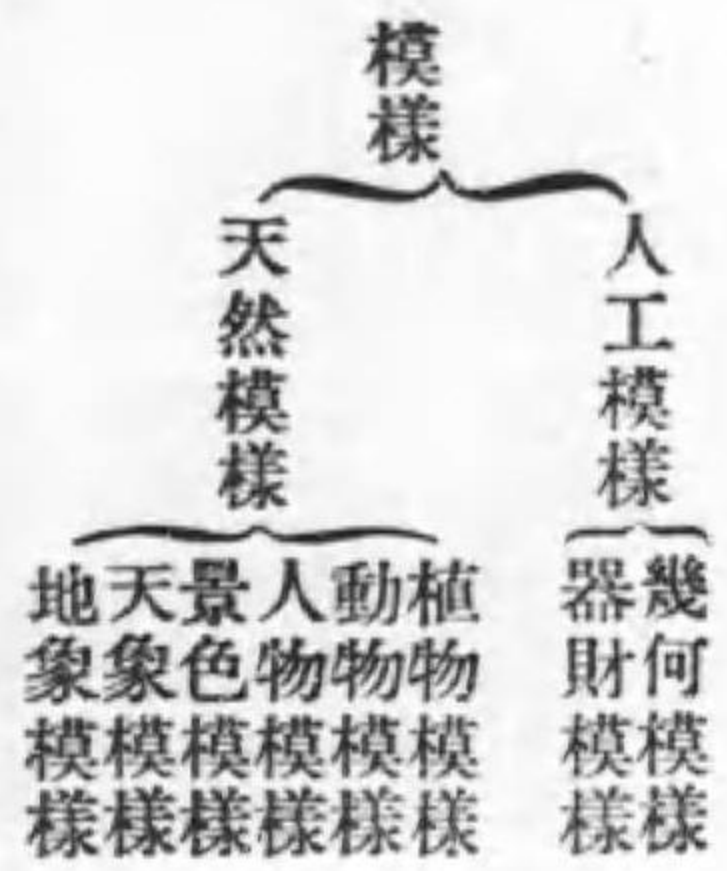 模樣
人工模樣
幾何模樣
器財模樣
天然模樣
植物模樣
動物模樣
人物模樣
景色模樣
天象模樣
地象模樣